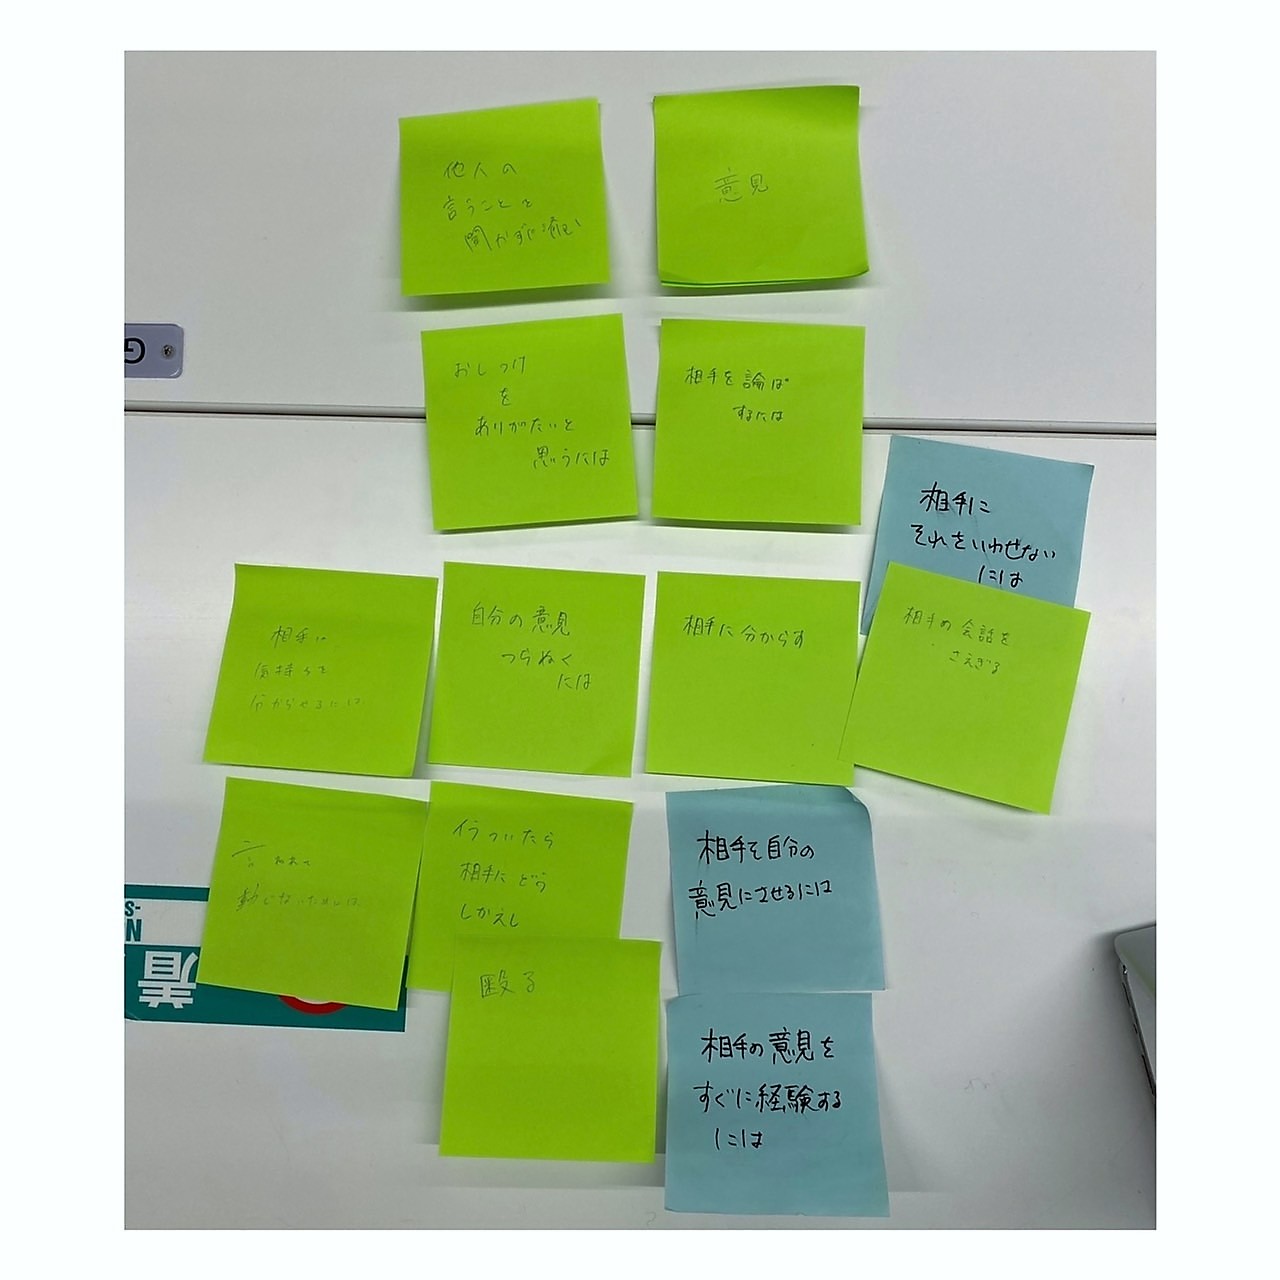 他人の
言うことを
聞かずに
意見
おしつけ
を
ありがたいと
思うには
相手を論ぱ
するには
相手に
それをいわせない
には
相手に
気持ちを
自分の意見
つらぬく
には
相手に分からす
相手の会話を
さえぎる
言われて
動じないためには
イラついたら
相手にどう
しかえし
相手を自分の
意見にさせるには
殴る
相手の意見を
すぐに経験する
には
G
着